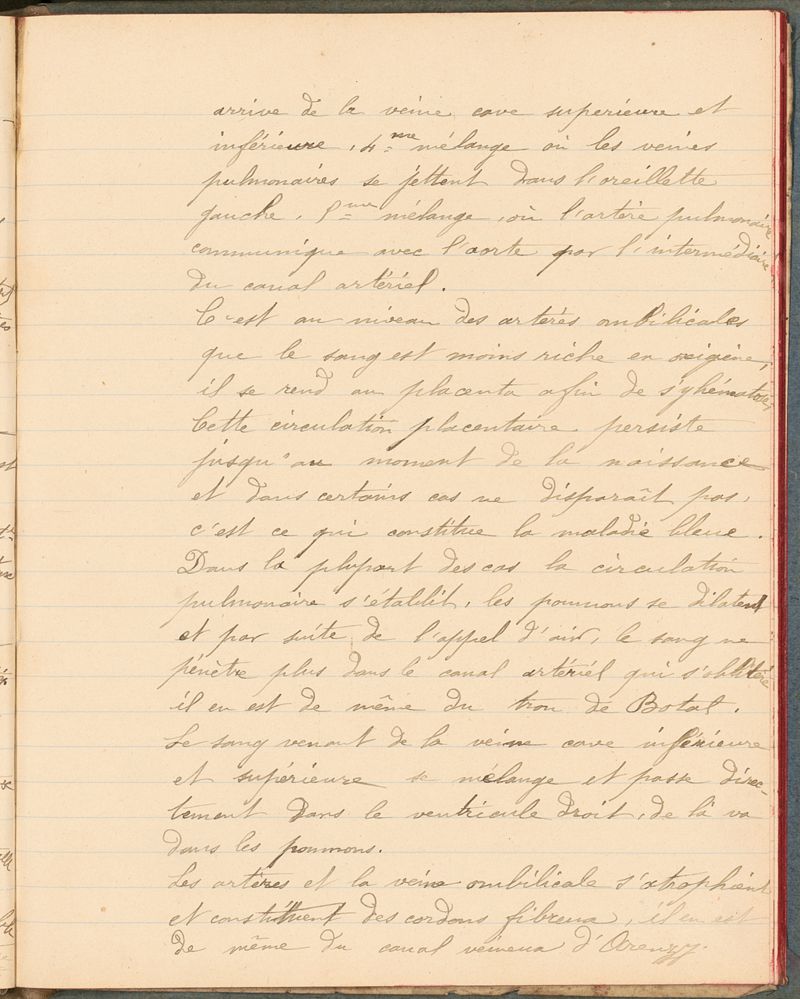 arrive de la veine cave superieure et
inférieure, 4me mélange où les veines
pulmonaires se jettent dans l'oreillette
gauche. 5me mélange, où l'artère pulmonaire
communique avec l'aorte par l'intermédiaire
du canal artériel.
C'est au niveau des artères ombilicales
que le sang est moins riche en oxigène,
il se rend au placenta afin de s'yhématoser
Cette circulation placentaire persiste
jusqu'au moment de la naissance
et dans certains cas ne disparaît pas,
c'est ce qui constitue la maladie bleue.
Dans la plupart des cas la circulation
pulmonaire s'établit, les poumons se dilatent
et par suite de l'appel d'air, le sang ne
pénètre plus dans le canal artériel qui s'oblitère
il en est de même du trou de Botal.
Le sang venant de la veine cave inférieure
et supérieure se mélange et passe direc-
tement dans le ventricule droit, de là va
dans les poumons.
Les artères et la veine ombilicale s'atrophient
et constituent des cordons fibreux, il en est
de même du canal veineux d'Arenzy.